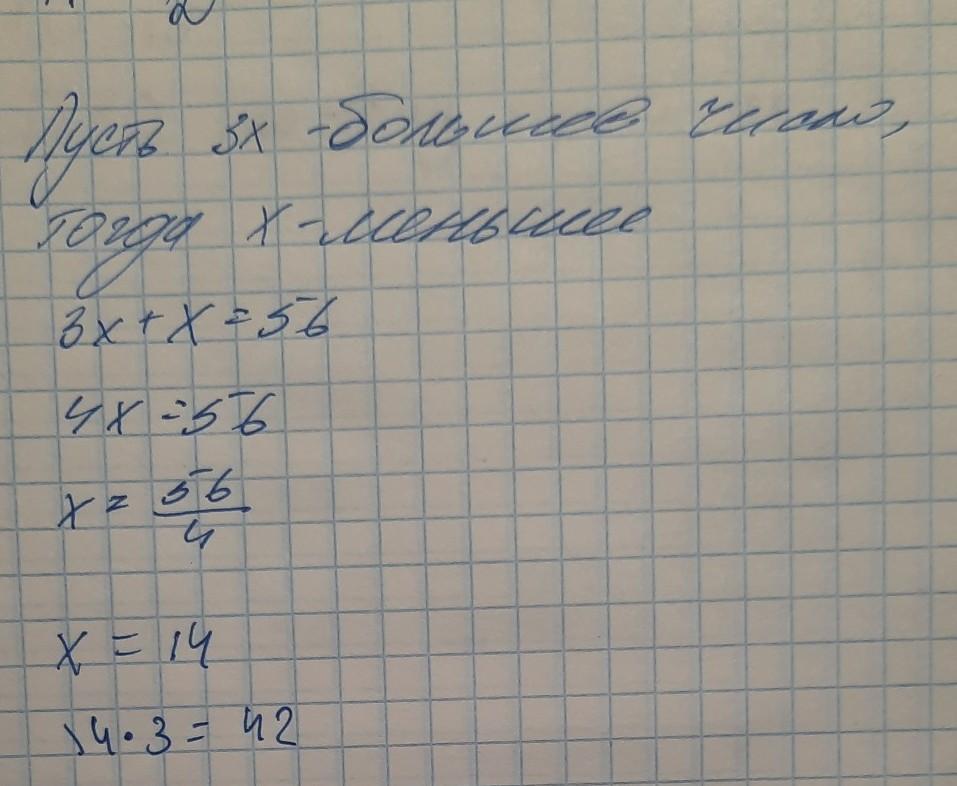 2
Пусть 3х - большее число,
тогда х - меньшее
3х + х = 56
4х = 56
х = 56/4
х = 14
14 · 3 = 42